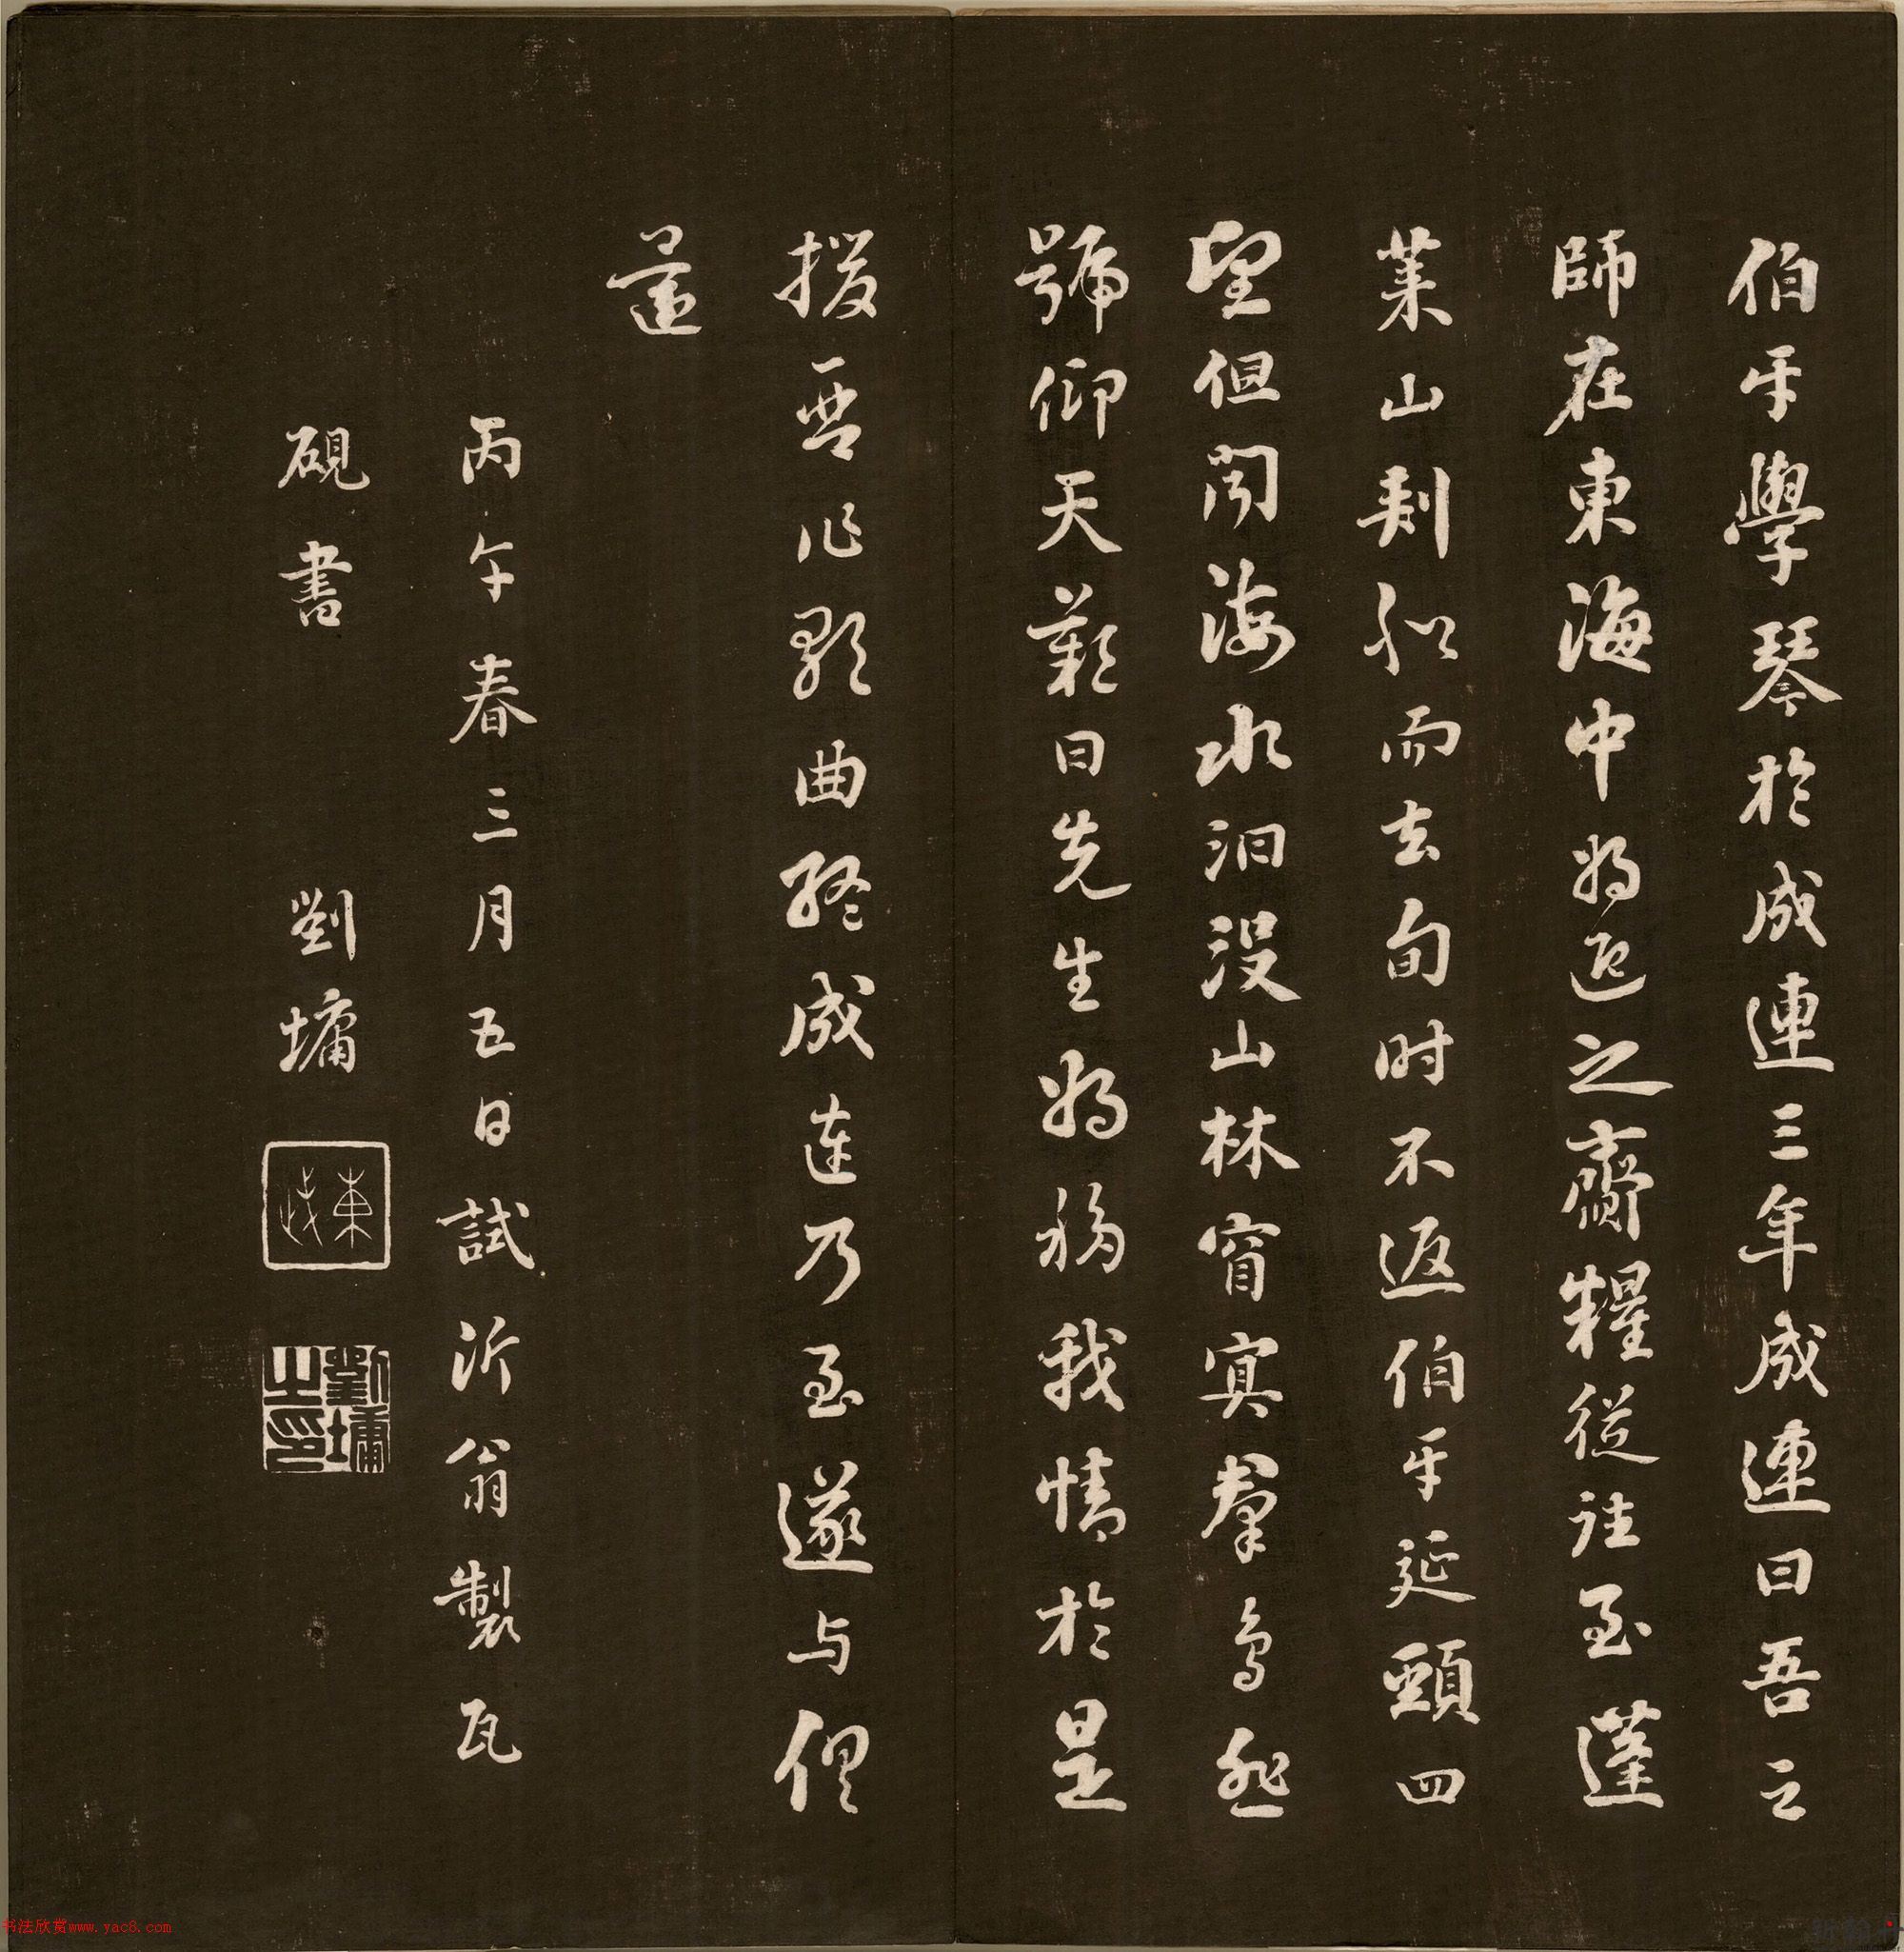 伯牙學琴於成連三年成連曰吾之
師在東海中将迎之齎糧從往至蓬
萊山刾船而去旬时不返伯牙延頸四
望但聞海水汩沒山林窅冥羣鳥悲
號仰天歎曰先生将移我情於是
援琴作歌曲終成連乃至遂与俱
還
丙午春三月五日試沂翁製瓦
硯書 劉墉
東武
劉墉之印
书法欣赏www.yac8.com